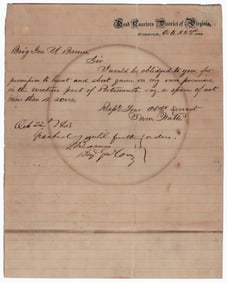 Head Quarters District of Virginia,
Brig Gen
Sir
I would be obliged to you for
permission to hunt and shoot game on my own premises
in the western part of Portsmouth, say a space of not
more than 10 acres
Respy Your Obdt Servt
Sam Watts
Oct 22d 1863
granted until further orders
Brig Gen Comg